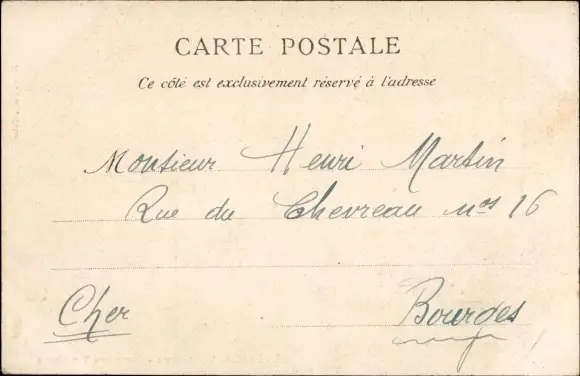 CARTE POSTALE
Ce côté est exclusivement réservé à l'adresse
Monsieur Henri Martin
Rue du Chevreau nos 16
Cher
Bourges